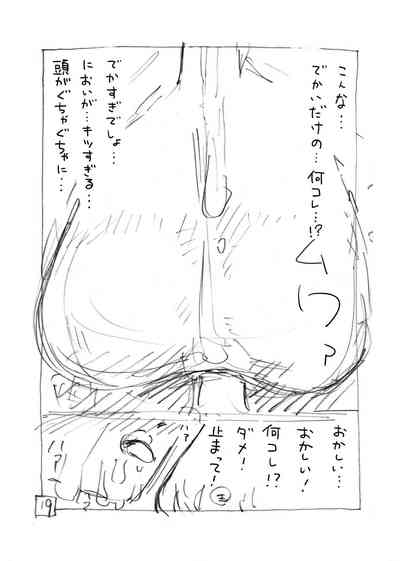 こんな…
でかいだけの…
何コレ…!?
ムワァ
でかすぎでしょ…
においが…キツすぎる…
頭がぐちゃぐちゃに…
おかしい…
おかしい!
何コレ!?
ダメ!
止まって!
19